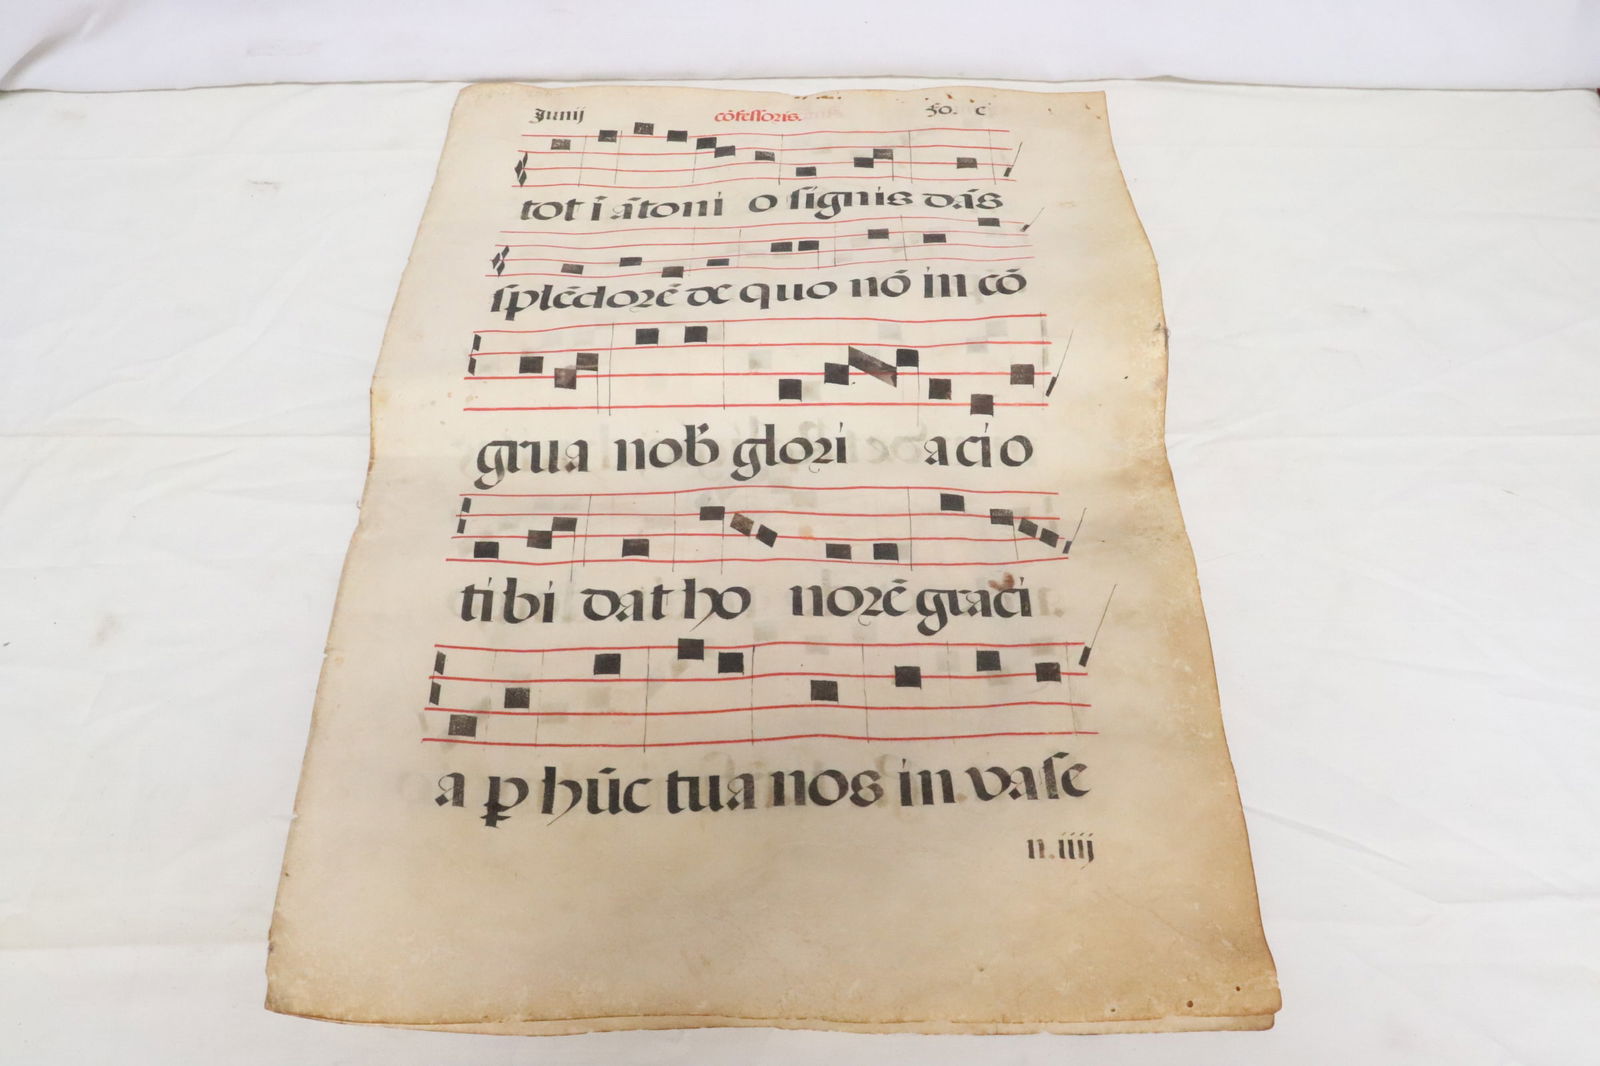 Junij cōfessoris. Fo. c
tot ī ātoni o signis dās
splēdorē de quo nō in cō
grua nob̄ glori acio
tibi dat ho norē graci
a ꝑ hūc tua nos in vase
n.iiij